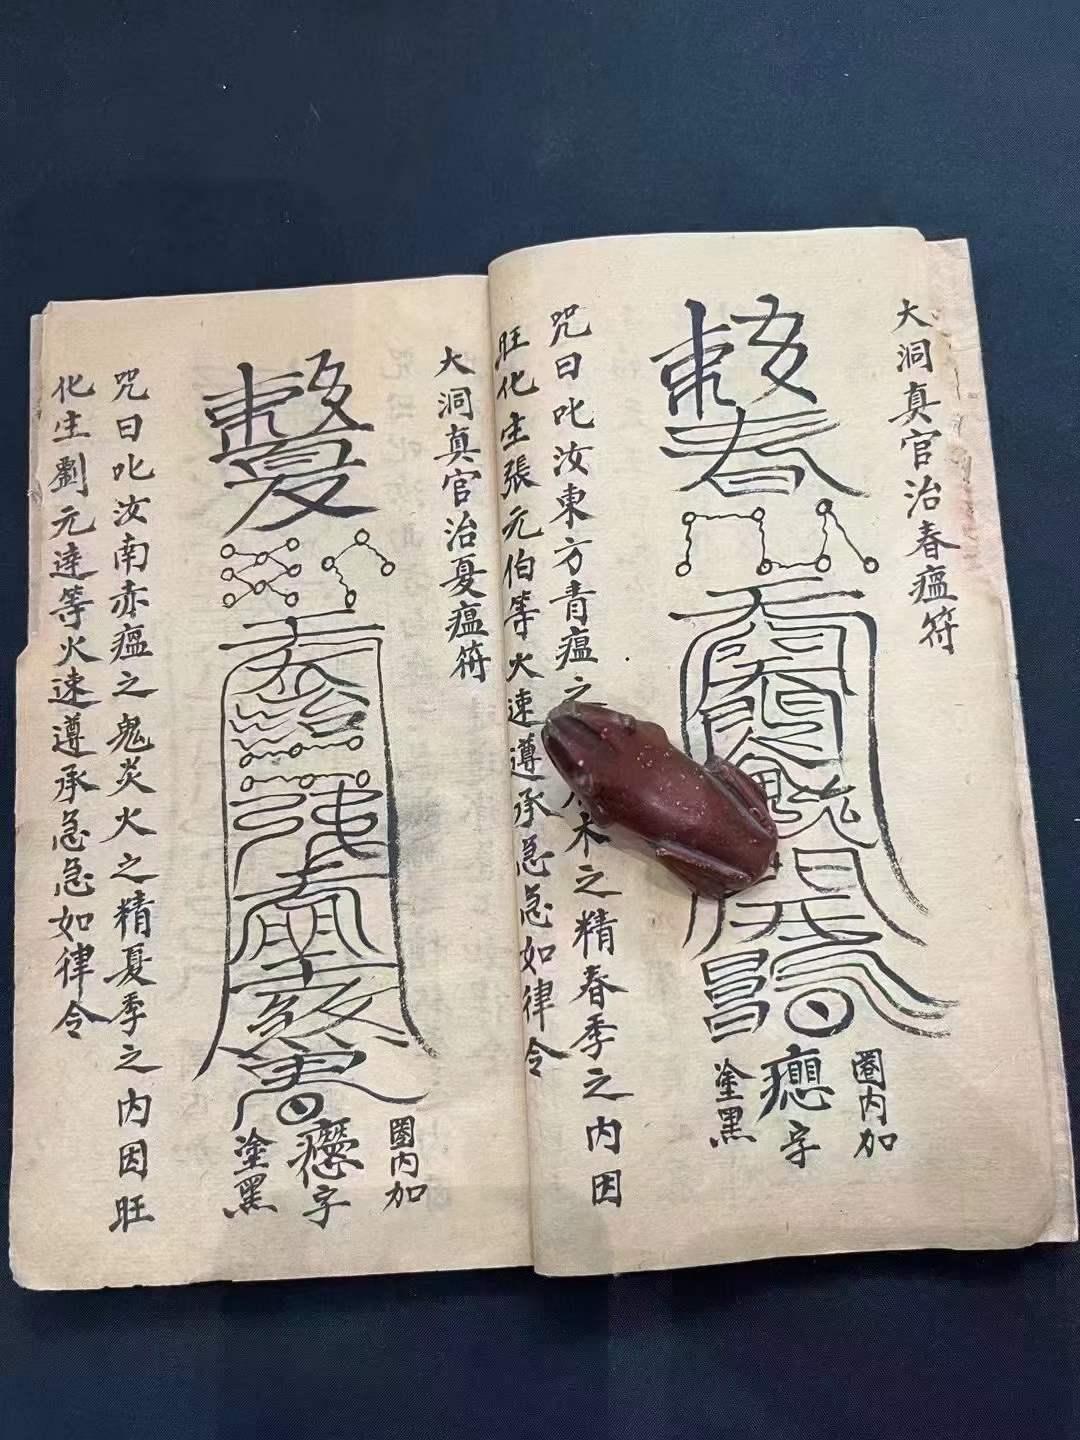 大洞真官治春瘟符
敕春
圈内加
字
塗黑
咒曰叱汝東方青瘟之木之精春季之内因
旺化生張元伯等火速遵承急急如律令
大洞真官治夏瘟符
敕夏
圈内加
字
塗黑
咒曰叱汝南赤瘟之鬼炎火之精夏季之内因旺
化生劉元達等火速遵承急急如律令